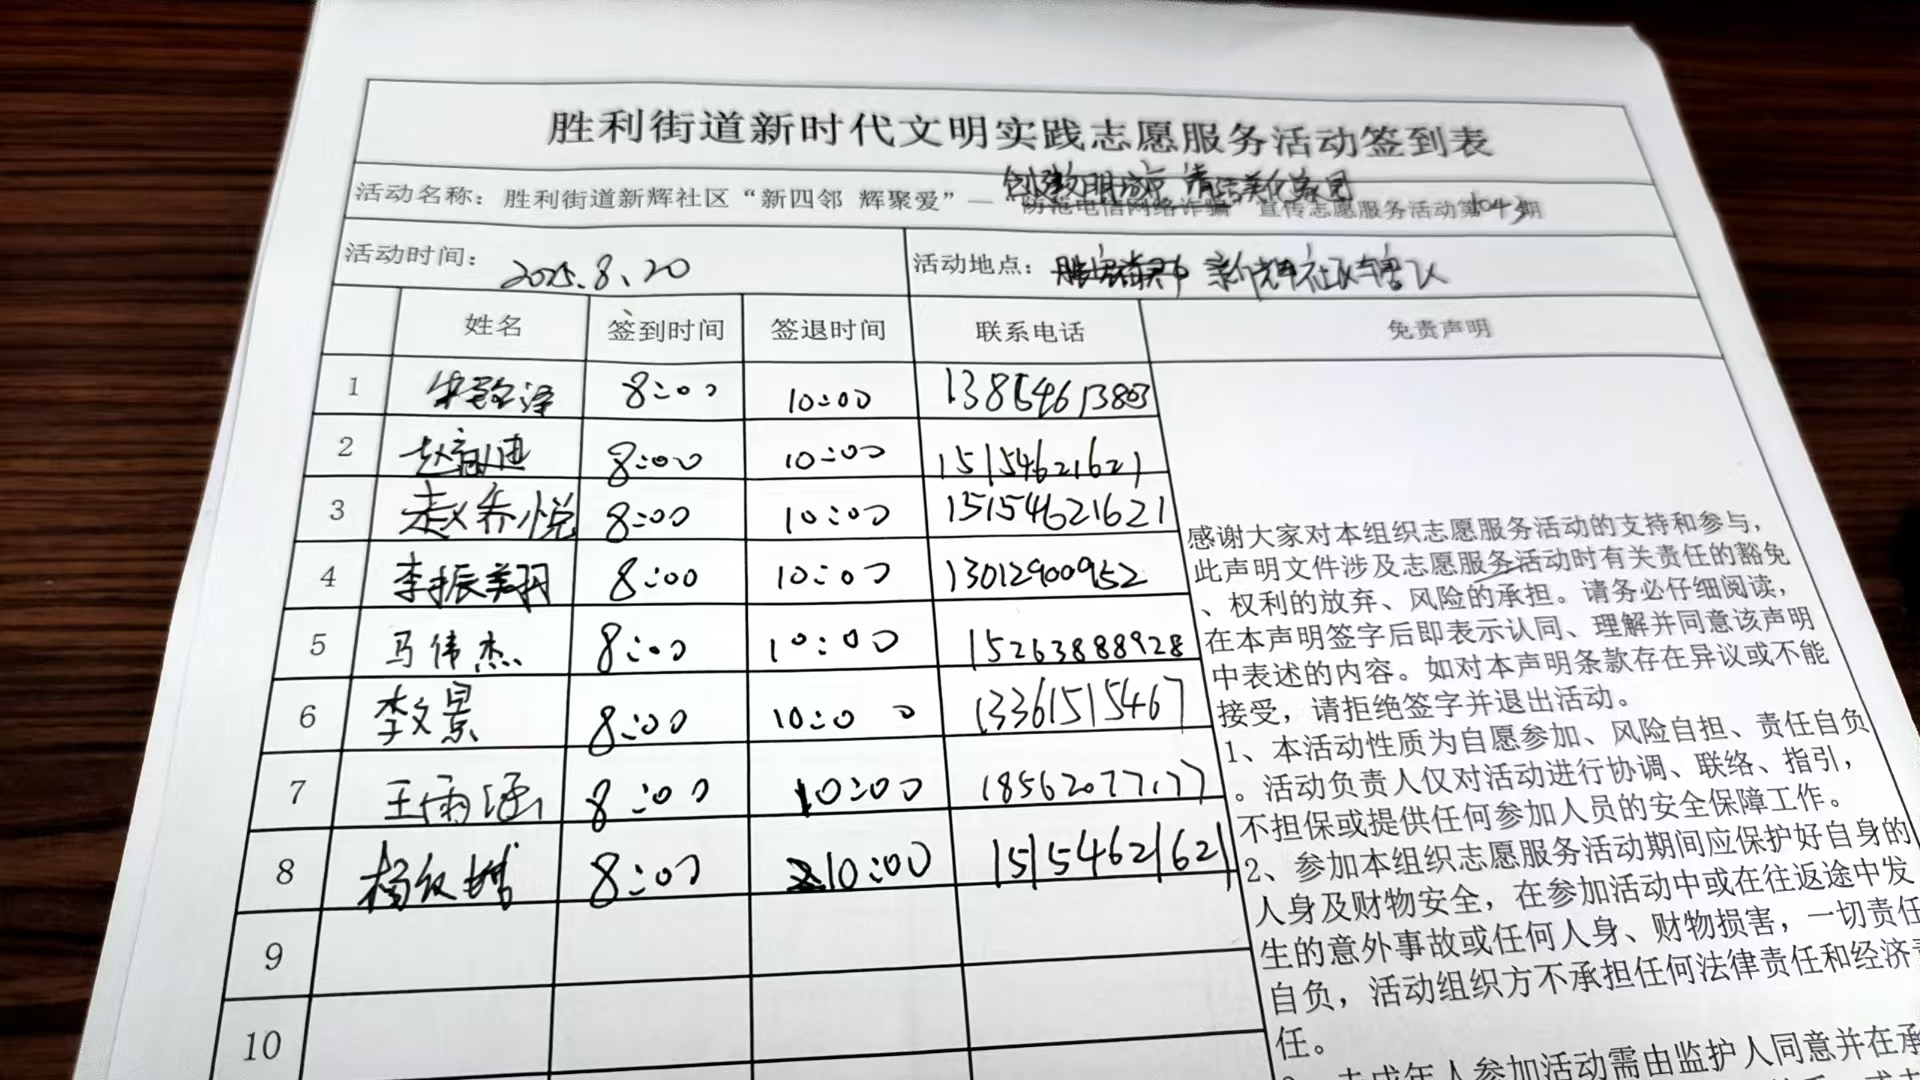 胜利街道新时代文明实践志愿服务活动签到表
创建文明城市 清洁美化家园
活动名称：胜利街道新辉社区“新四邻 辉聚爱”— 防范电信网络诈骗 宣传志愿服务活动第1043期
活动时间：2025.8.20 活动地点：新辉社区辖区
姓名 签到时间 签退时间 联系电话 免责声明
1 8:00 10:00 13854613803
2 赵 迪 8:00 10:00 15154621621
3 赵乔悦 8:00 10:00 15154621621
4 李振美羽 8:00 10:00 13012900952
5 马伟杰 8:00 10:00 15263888928
6 李文景 8:00 10:00 13361515467
7 王雨涵 8:00 10:00 18562077177
8 杨 8:00 10:00 15154621621
9
10
感谢大家对本组织志愿服务活动的支持和参与，
此声明文件涉及志愿服务活动时有关责任的豁免
、权利的放弃、风险的承担。请务必仔细阅读，
在本声明签字后即表示认同、理解并同意该声明
中表述的内容。如对本声明条款存在异议或不能
接受，请拒绝签字并退出活动。
1、本活动性质为自愿参加、风险自担、责任自负
。活动负责人仅对活动进行协调、联络、指引，
不担保或提供任何参加人员的安全保障工作。
2、参加本组织志愿服务活动期间应保护好自身的
人身及财物安全，在参加活动中或在往返途中发
生的意外事故或任何人身、财物损害，一切责任
自负，活动组织方不承担任何法律责任和经济责
任。
3、未成年人参加活动需由监护人同意并在承